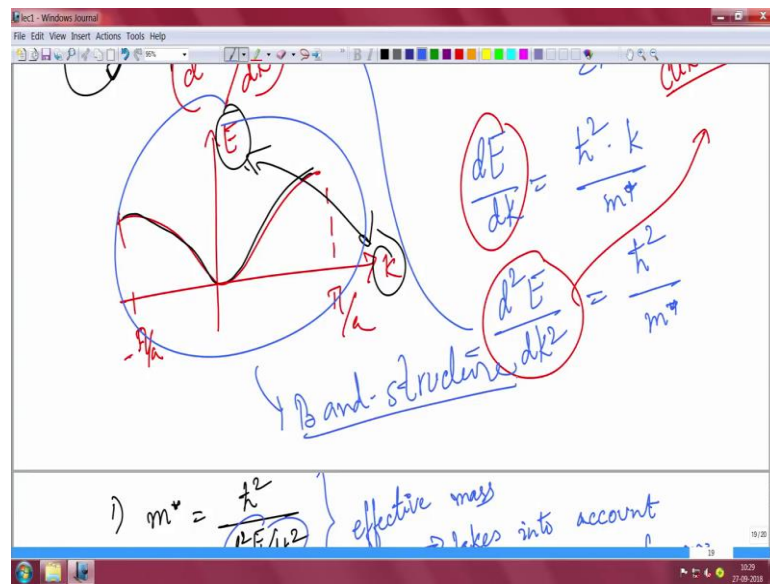 lec1 - Windows Journal
File Edit View Insert Actions Tools Help
95%
B I
d dk
E
K
-π/a
π/a
dE/dK = ħ² · k / m*
d²E/dk² = ħ² / m*
Band-structure
1) m* = ħ² / d²E/dk² } effective mass
→ takes into account
19/20
19
10:29
27-09-2018